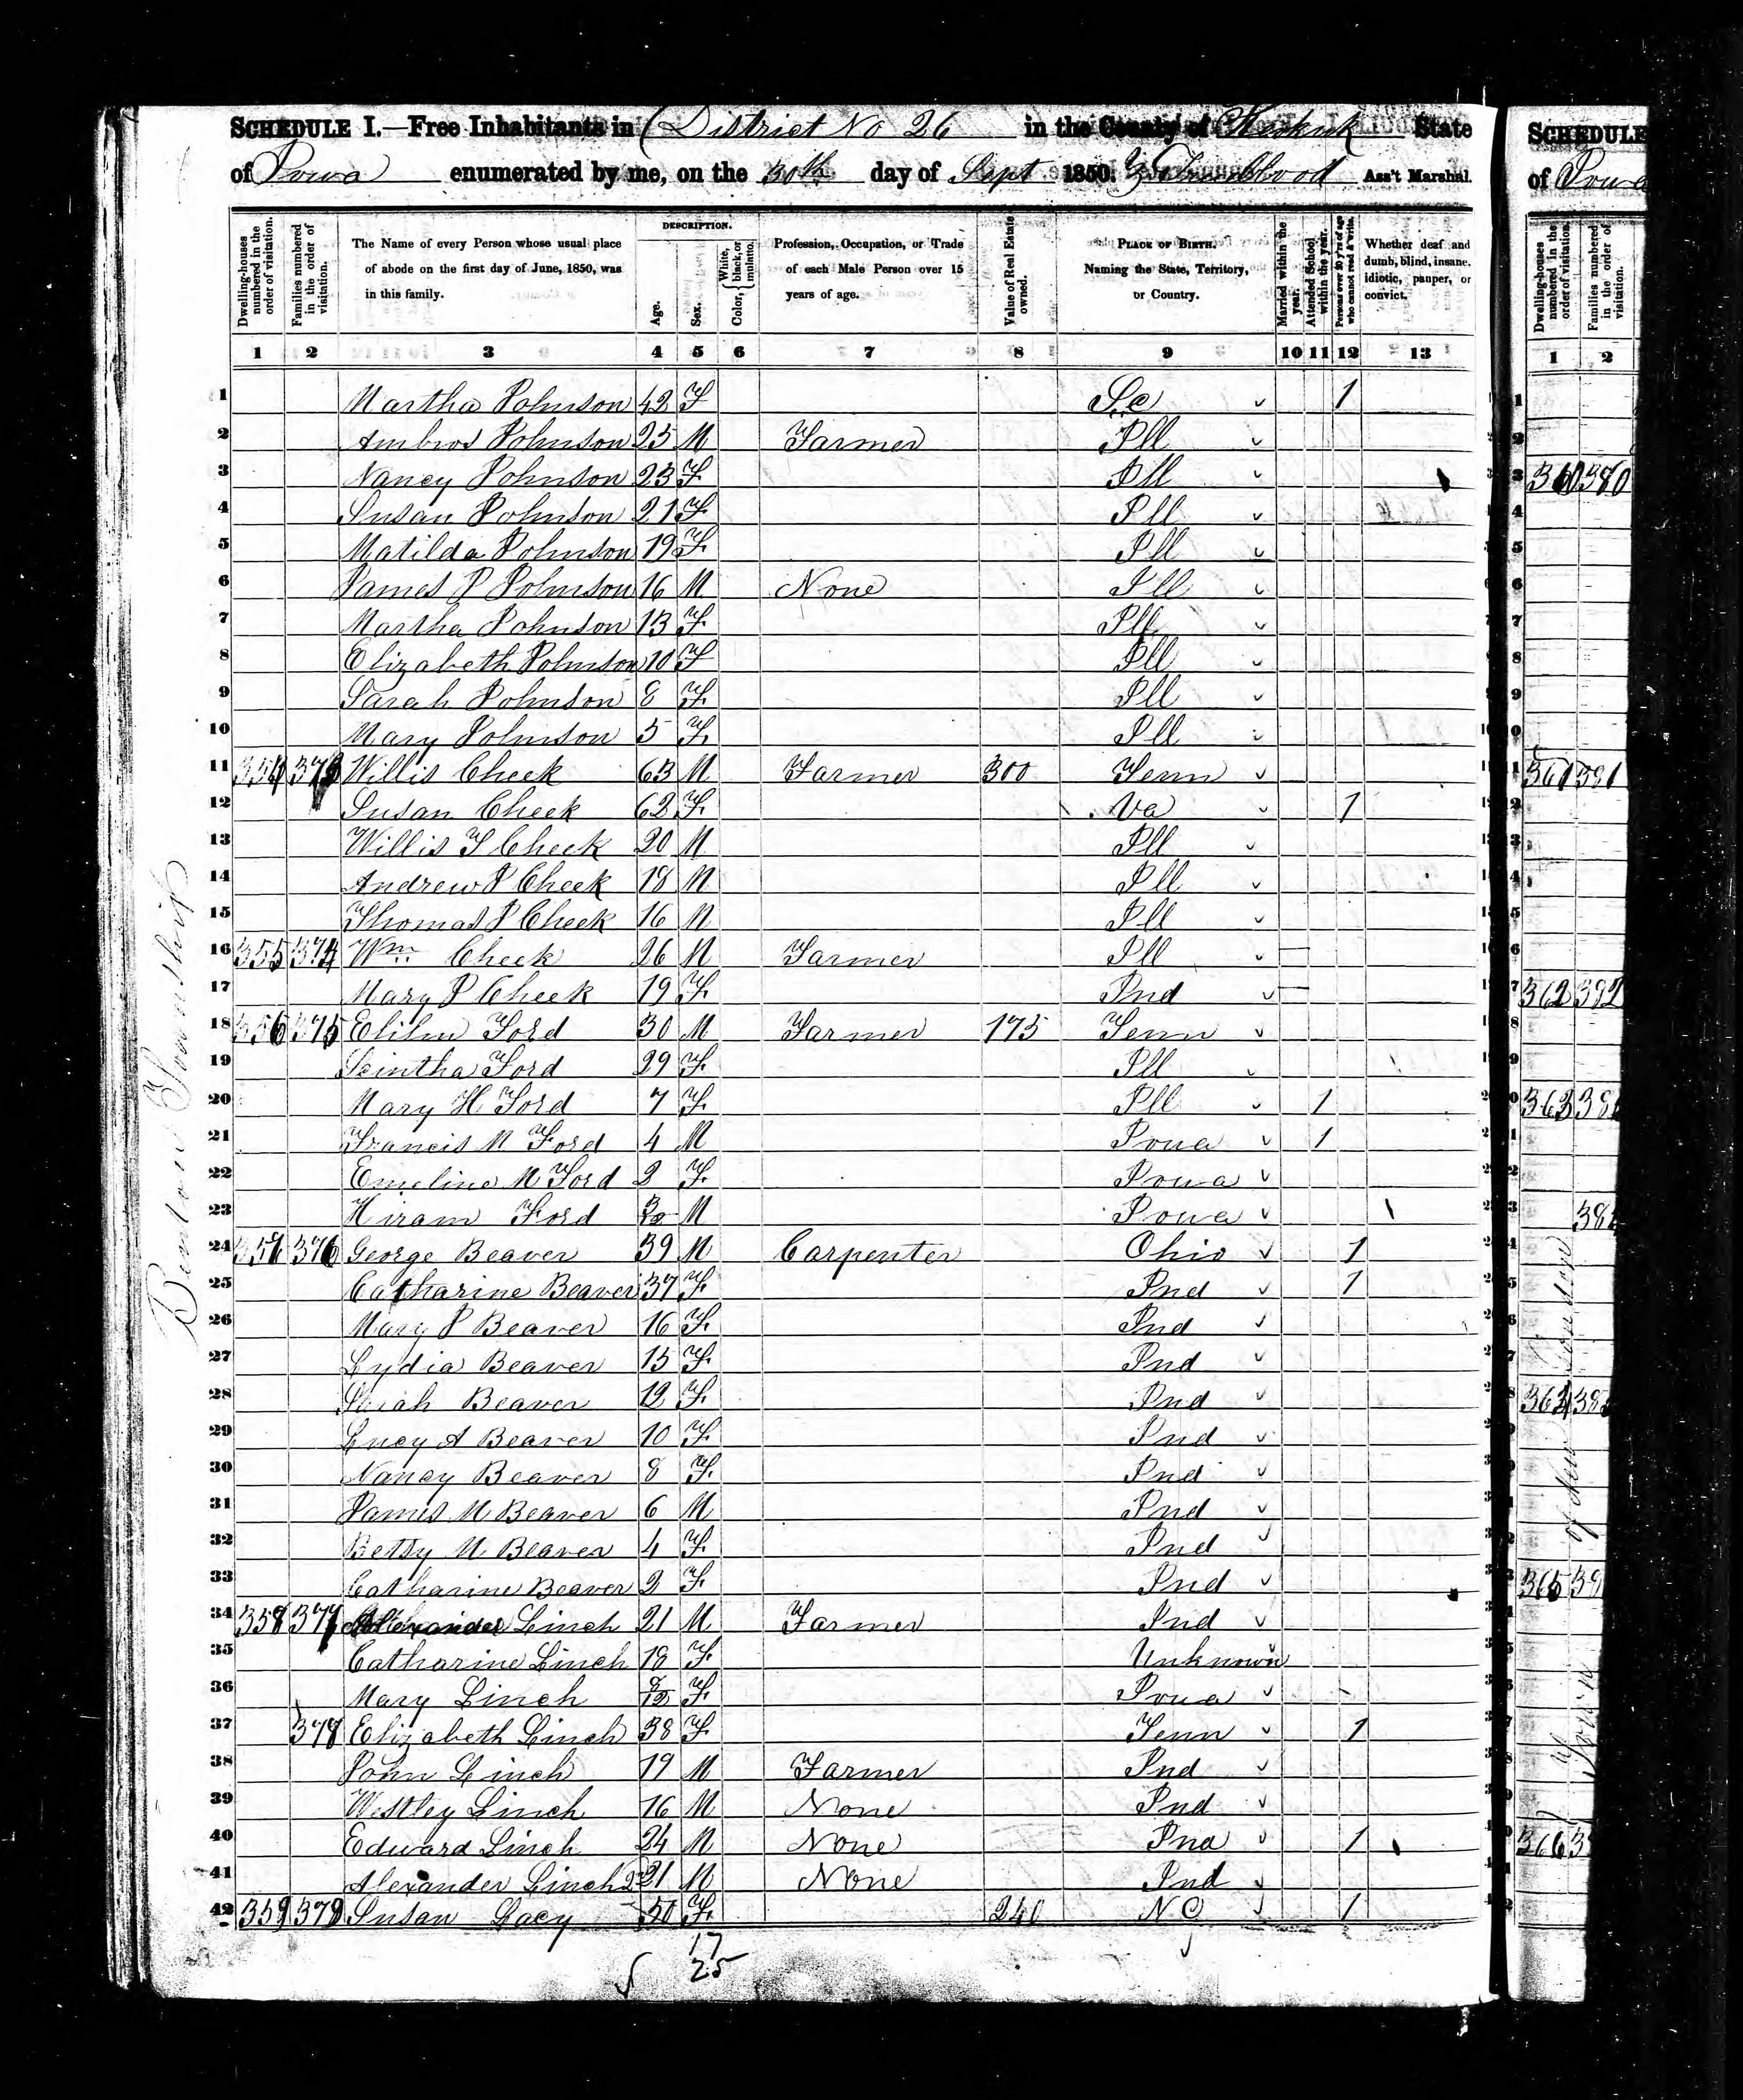 SCHEDULE I.—Free Inhabitants in District No 26 in the County of Keokuk State
of Iowa enumerated by me, on the 30th day of Sept 1850. Trueblood Ass't Marshal.
Dwelling-houses numbered in the order of visitation.
Families numbered in the order of visitation.
The Name of every Person whose usual place of abode on the first day of June, 1850, was in this family.
DESCRIPTION.
Age.
Sex.
Color, White, black, or mulatto.
Profession, Occupation, or Trade of each Male Person over 15 years of age.
Value of Real Estate owned.
PLACE OF BIRTH. Naming the State, Territory, or Country.
Married within the year.
Attended School within the year.
Persons over 20 y'rs of age who cannot read & write.
Whether deaf and dumb, blind, insane, idiotic, pauper, or convict.
1 2 3 4 5 6 7 8 9 10 11 12 13
1 Martha Johnson 42 F Sc 1
2 Ambros Johnson 25 M Farmer Ill
3 Nancy Johnson 23 F Ill
4 Susan Johnson 21 F Ill
5 Matilda Johnson 19 F Ill
6 James P Johnson 16 M None Ill
7 Martha Johnson 13 F Ill
8 Elizabeth Johnson 10 F Ill
9 Sarah Johnson 8 F Ill
10 Mary Johnson 5 F Ill
11 354 373 Willis Cheek 63 M Farmer 300 Tenn
12 Susan Cheek 62 F Va 1
13 Willis Y Cheek 20 M Ill
14 Andrew J Cheek 18 M Ill
15 Thomas J Cheek 16 M Ill
16 355 374 Wm Cheek 26 M Farmer Ill
17 Mary J Cheek 19 F Ind
18 356 375 Elihu Ford 30 M Farmer 175 Tenn
19 Scintha Ford 29 F Ill
20 Mary H Ford 7 F Ill 1
21 Francis M Ford 4 M Iowa 1
22 Emeline M Ford 2 F Iowa
23 Hiram Ford M Iowa
24 376 George Beaver 39 M Carpenter Ohio 1
25 Catharine Beaver 37 F Ind 1
26 Mary J Beaver 16 F Ind
27 Lydia Beaver 15 F Ind
28 Beaver 12 F Ind
29 Lucy A Beaver 10 F Ind
30 Nancy Beaver 8 F Ind
31 James M Beaver 6 M Ind
32 Betsy M Beaver 4 F Ind
33 Catharine Beaver 2 F Ind
34 358 377 Alexander Linch 21 M Farmer Ind
35 Catharine Linch 18 F Unknown
36 Mary Linch 8/12 F Iowa
37 378 Elizabeth Linch 38 F Tenn 1
38 John Linch 19 M Farmer Ind
39 Westley Linch 16 M None Ind
40 Edward Linch 24 M None Ind 1
41 Alexander Linch 2d 21 M None Ind
42 359 379 Susan Lacy 50 F 240 NC 1
17
25
Benton Township
SCHEDULE
of Iowa
Dwelling-houses numbered in the order of visitation.
Families numbered in the order of visitation.
1 2
360 380
361 381
362 382
363 38
364 38
365 38
366 3